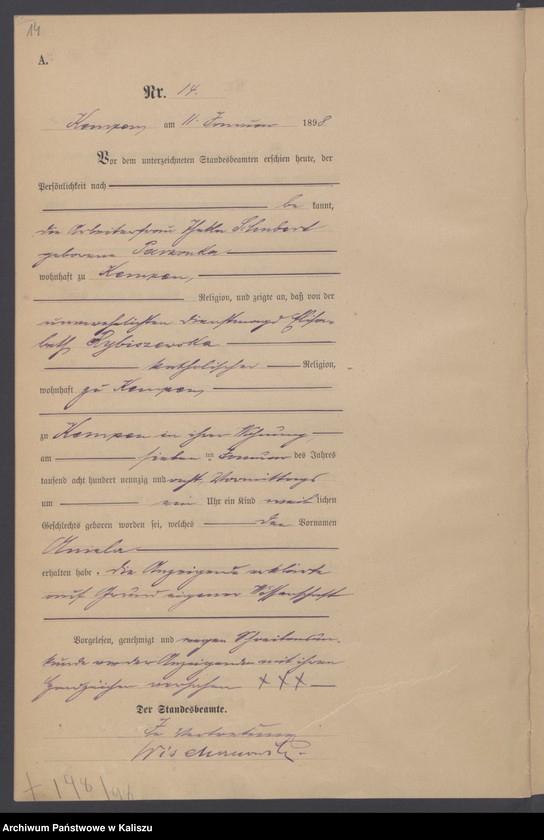 14
A.
Nr. 14.
Kempen, am 11. Januar 1898
Vor dem unterzeichneten Standesbeamten erschien heute, der
Persönlichkeit nach
be kannt,
die Arbeiterfrau Thekla Schubert
geborene
wohnhaft zu Kempen,
Religion, und zeigte an, daß von der
unverehelichten Dienstmagd Elisa-
beth Rybiszewska
katholischer Religion,
wohnhaft zu Kempen,
zu Kempen in ihrer Wohnung
am sieben ten Januar des Jahres
tausend acht hundert neunzig und acht, Vormittags
um ein Uhr ein Kind weib lichen
Geschlechts geboren worden sei, welches den Vornamen
Aniela
erhalten habe. Die Anzeigende erklärte
auf Grund eigener Wissenschaft
Vorgelesen, genehmigt und wegen Schreibensun-
kunde von der Anzeigenden mit ihren
Handzeichen versehen XXX
Der Standesbeamte.
In Vertretung
+ 148/98
Archiwum Państwowe w Kaliszu